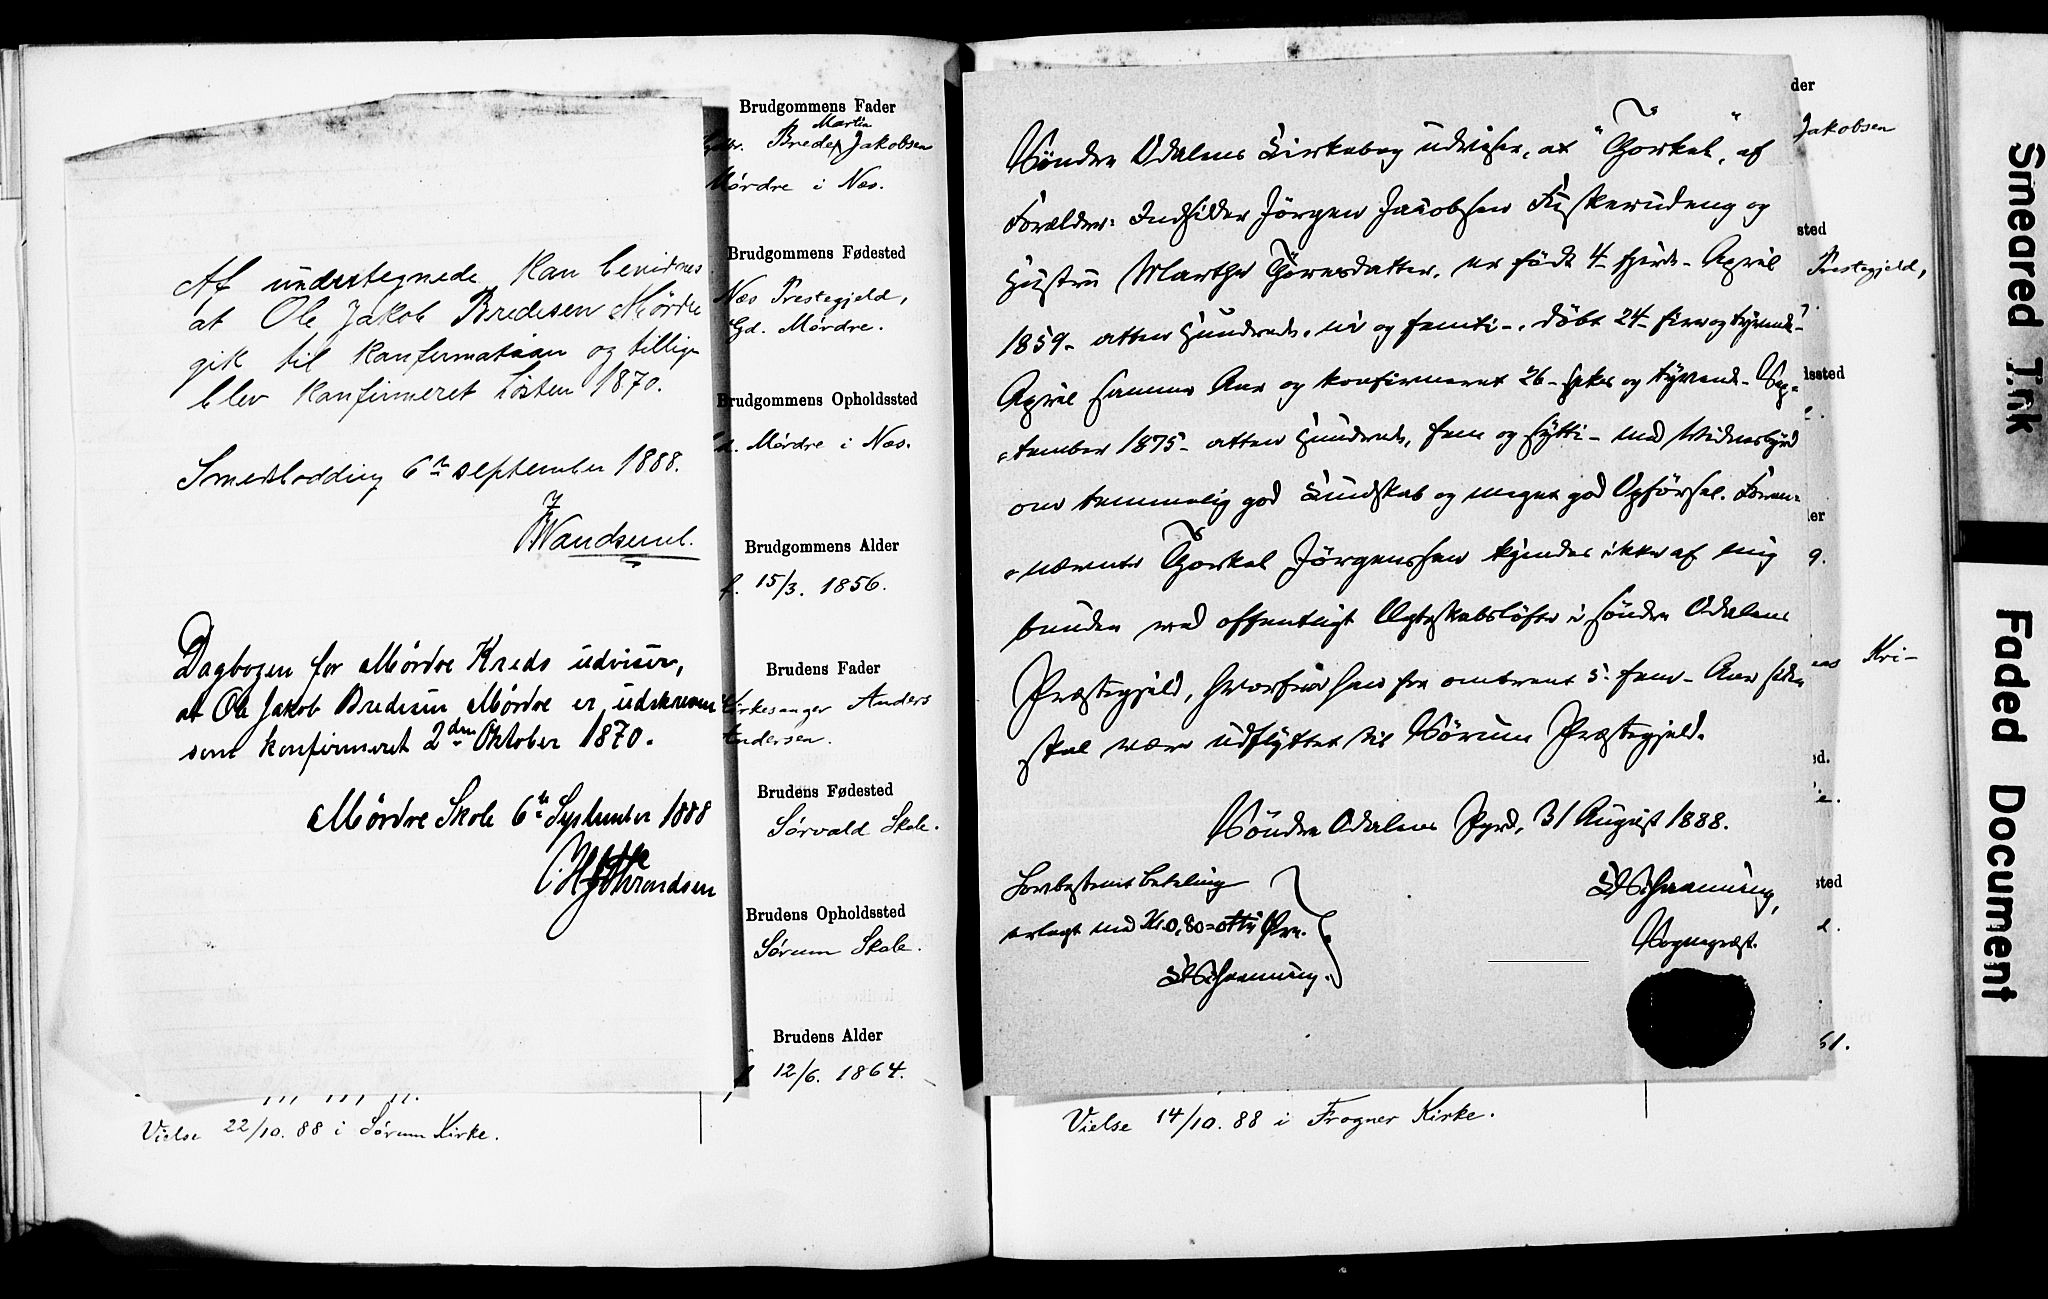 Af undertegnede kan bevidnes
at Ole Jakob Bredesen Mørdre
gik til Konfirmation og tillige
blev konfirmeret høsten 1870.
6te september 1888.
Dagbogen for Mørdre Kreds udviser,
at Ole Jakob Bredesen Mørdre er udskreven
som konfirmeret 2den Oktober 1870.
Mørdre Skole 6te September 1888
Vielse 22/10. 88 i Sørum Kirke.
Brudgommens Fader
Martin
Brede Jakobsen
Mørdre i Næs.
Brudgommens Fødested
Næs Prestegjeld,
Gd. Mørdre.
Brudgommens Opholdssted
Mørdre i Næs.
Brudgommens Alder
f. 15/3. 1856.
Brudens Fader
Kirkesanger Anders
Andersen.
Brudens Fødested
Sørvald Skole.
Brudens Opholdssted
Sørum Skole.
Brudens Alder
12/6. 1864.
Søndre Odalens Kirkebog udviser, at "Thorkel", af
Forældre: Indsidder Jörgen Jacobsen Fiskerudeng og
Hustru Marthe Thoresdatter, er född 4 - fjerde - April
1859 - atten Hundrede, ni og femti -, döbt 24 - fire og tyvende -
April samme Aar og konfirmeret 26 - sex og tyvende - Sep-
tember 1875 - atten Hundrede, fem og sytti - med Vidnesbyrd
om temmelig god Kundskab og meget god Opförsel. Foran-
nævnte Thorkel Jörgensen kjendes ikke af mig
bunden ved offentligt Ægteskabslöfte i Söndre Odalens
Præstegjeld, hvorfra han for omtrent 5 - fem - Aar siden
skal være udflyttet til Sörum Præstegjeld.
Söndre Odalens Pgrd, 31 August 1888.
Lovbestemt betaling
erlagt med Kr 0,80 = otti Øre.
Schanning,
Sognepræst.
Schanning.
Vielse 14/10. 88 i Frogner Kirke.
der
Jakobsen
sted
Prestegjeld,
dssted
ler
9.
Kri-
ed.
sted
51.
Smeared Ink
Faded Document